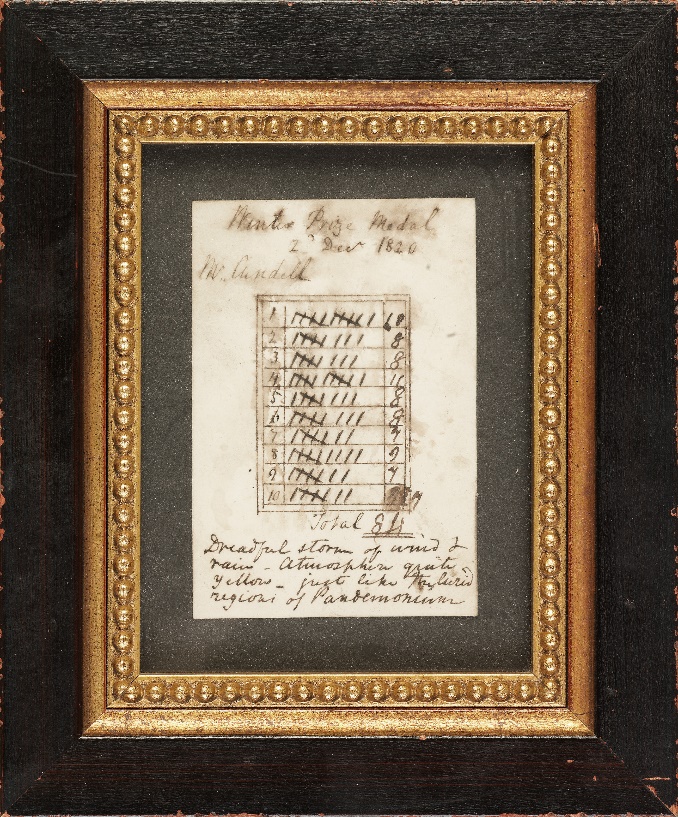 Winter Prize Medal
2ᵈ Decr 1820
Mr. Cundell
1 10
2 8
3 8
4 11
5 8
6 8
7 7
8 9
9 7
10 7
Total 84
Dreadful storm of wind &
rain - Atmosphere quite
yellow - just like the lurid
regions of Pandemonium